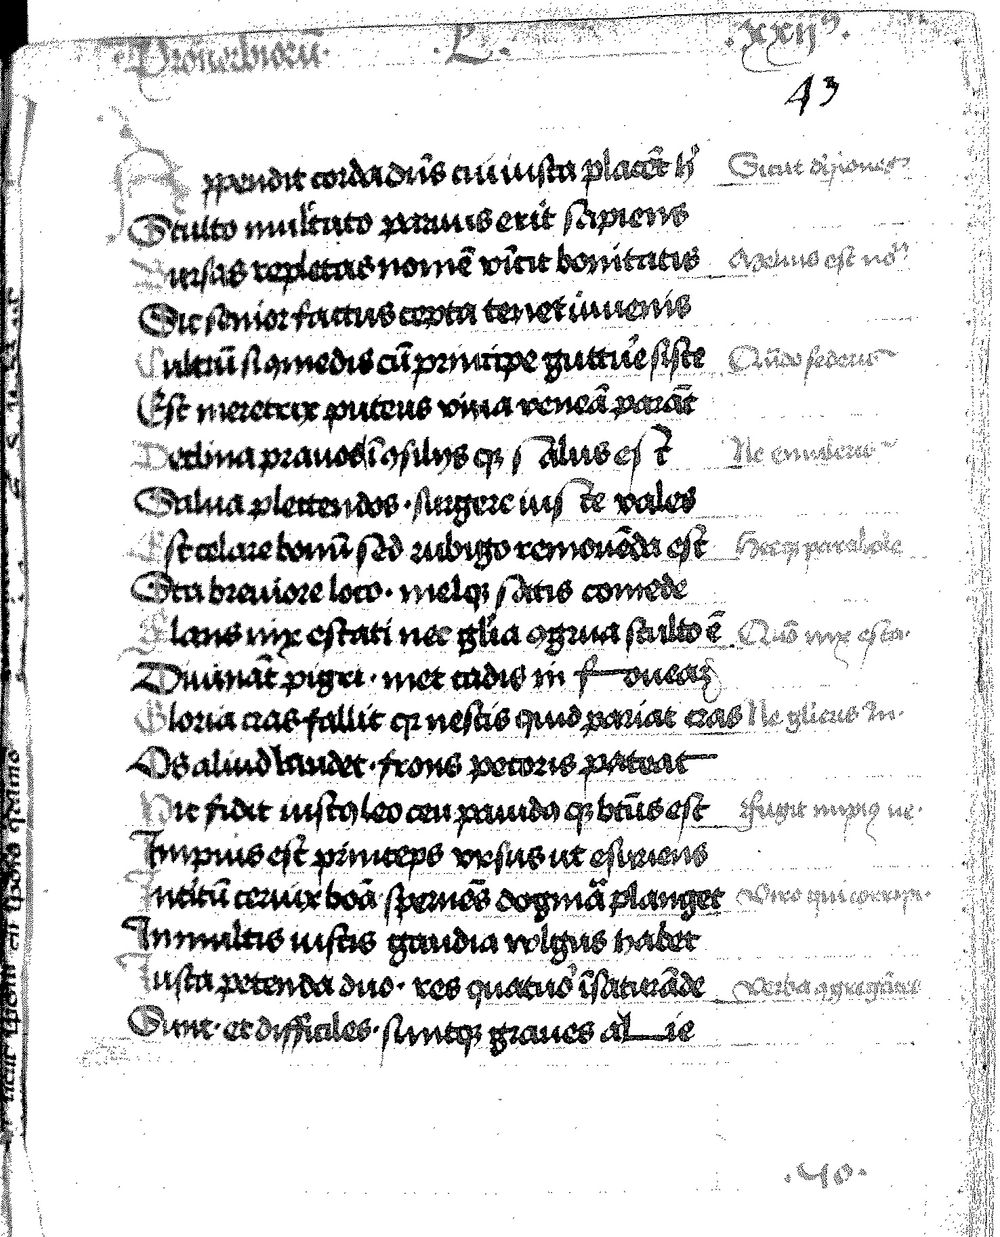 Prouerbiorū · L · xxij
43
Appendit corda dn̄s cui iusta placēt Sicut diuiones
Stulto mulctato paruus erit sapiens
Bursas repletas nomē vīcit bonitatis Melius est no
Sic senior factus cepta tenet iuuenis
Cultrū si comedis cū principe guttu'e siste Qn̄do sederis
Est meretrix puteus viua venēa parāt
Declina prauos salus est Ne emuleris
Salua plectendos · surgere iuste vales
Est celare bonū sed rubigo remouēda est Heeqꝫ parabole
Sta breuiore loco · melqꝫ satis comede
Flans nix estati nec gl'ia ꝯgrua stulto ē Quō nix esta·
Diuināt pigri · met cadis in foueaꝫ
Gloria cras fallit qꝛ nescis quid pariat cras Ne glieris In·
Os aliud laudet · frons pecoris pateat
Hic fidit iustꝯ leo ceu pauidꝯ qꝫ btūs est ffugit impiꝯ ne·
Impius est princeps vrsus ut esuriens
Intitū ceruix boā spernēs dogmā planget Viro qui corripi·
In multis iustis gaudia volgus habet
Iusta petenda duo · res quatuor īsaturāde Verba ꝯgregātis
Sunt · et difficiles · suntqꝫ graues alie
·40·